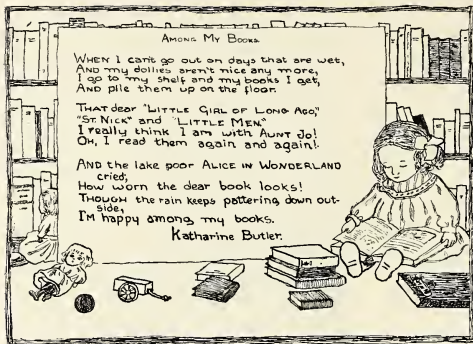 Among My Books
When I can't go out on days that are wet,
And my dollies aren't nice any more,
I go to my shelf and my books I get,
And pile them up on the floor.
That dear "Little Girl of Long Ago,"
"St. Nick" and "Little Men."
I really think I am with Aunt Jo!
Oh, I read them again and again!
And the lake poor Alice in Wonderland
cried;
How worn the dear book looks!
Though the rain keeps pattering down out-
side,
I'm happy among my books.
Katharine Butler.